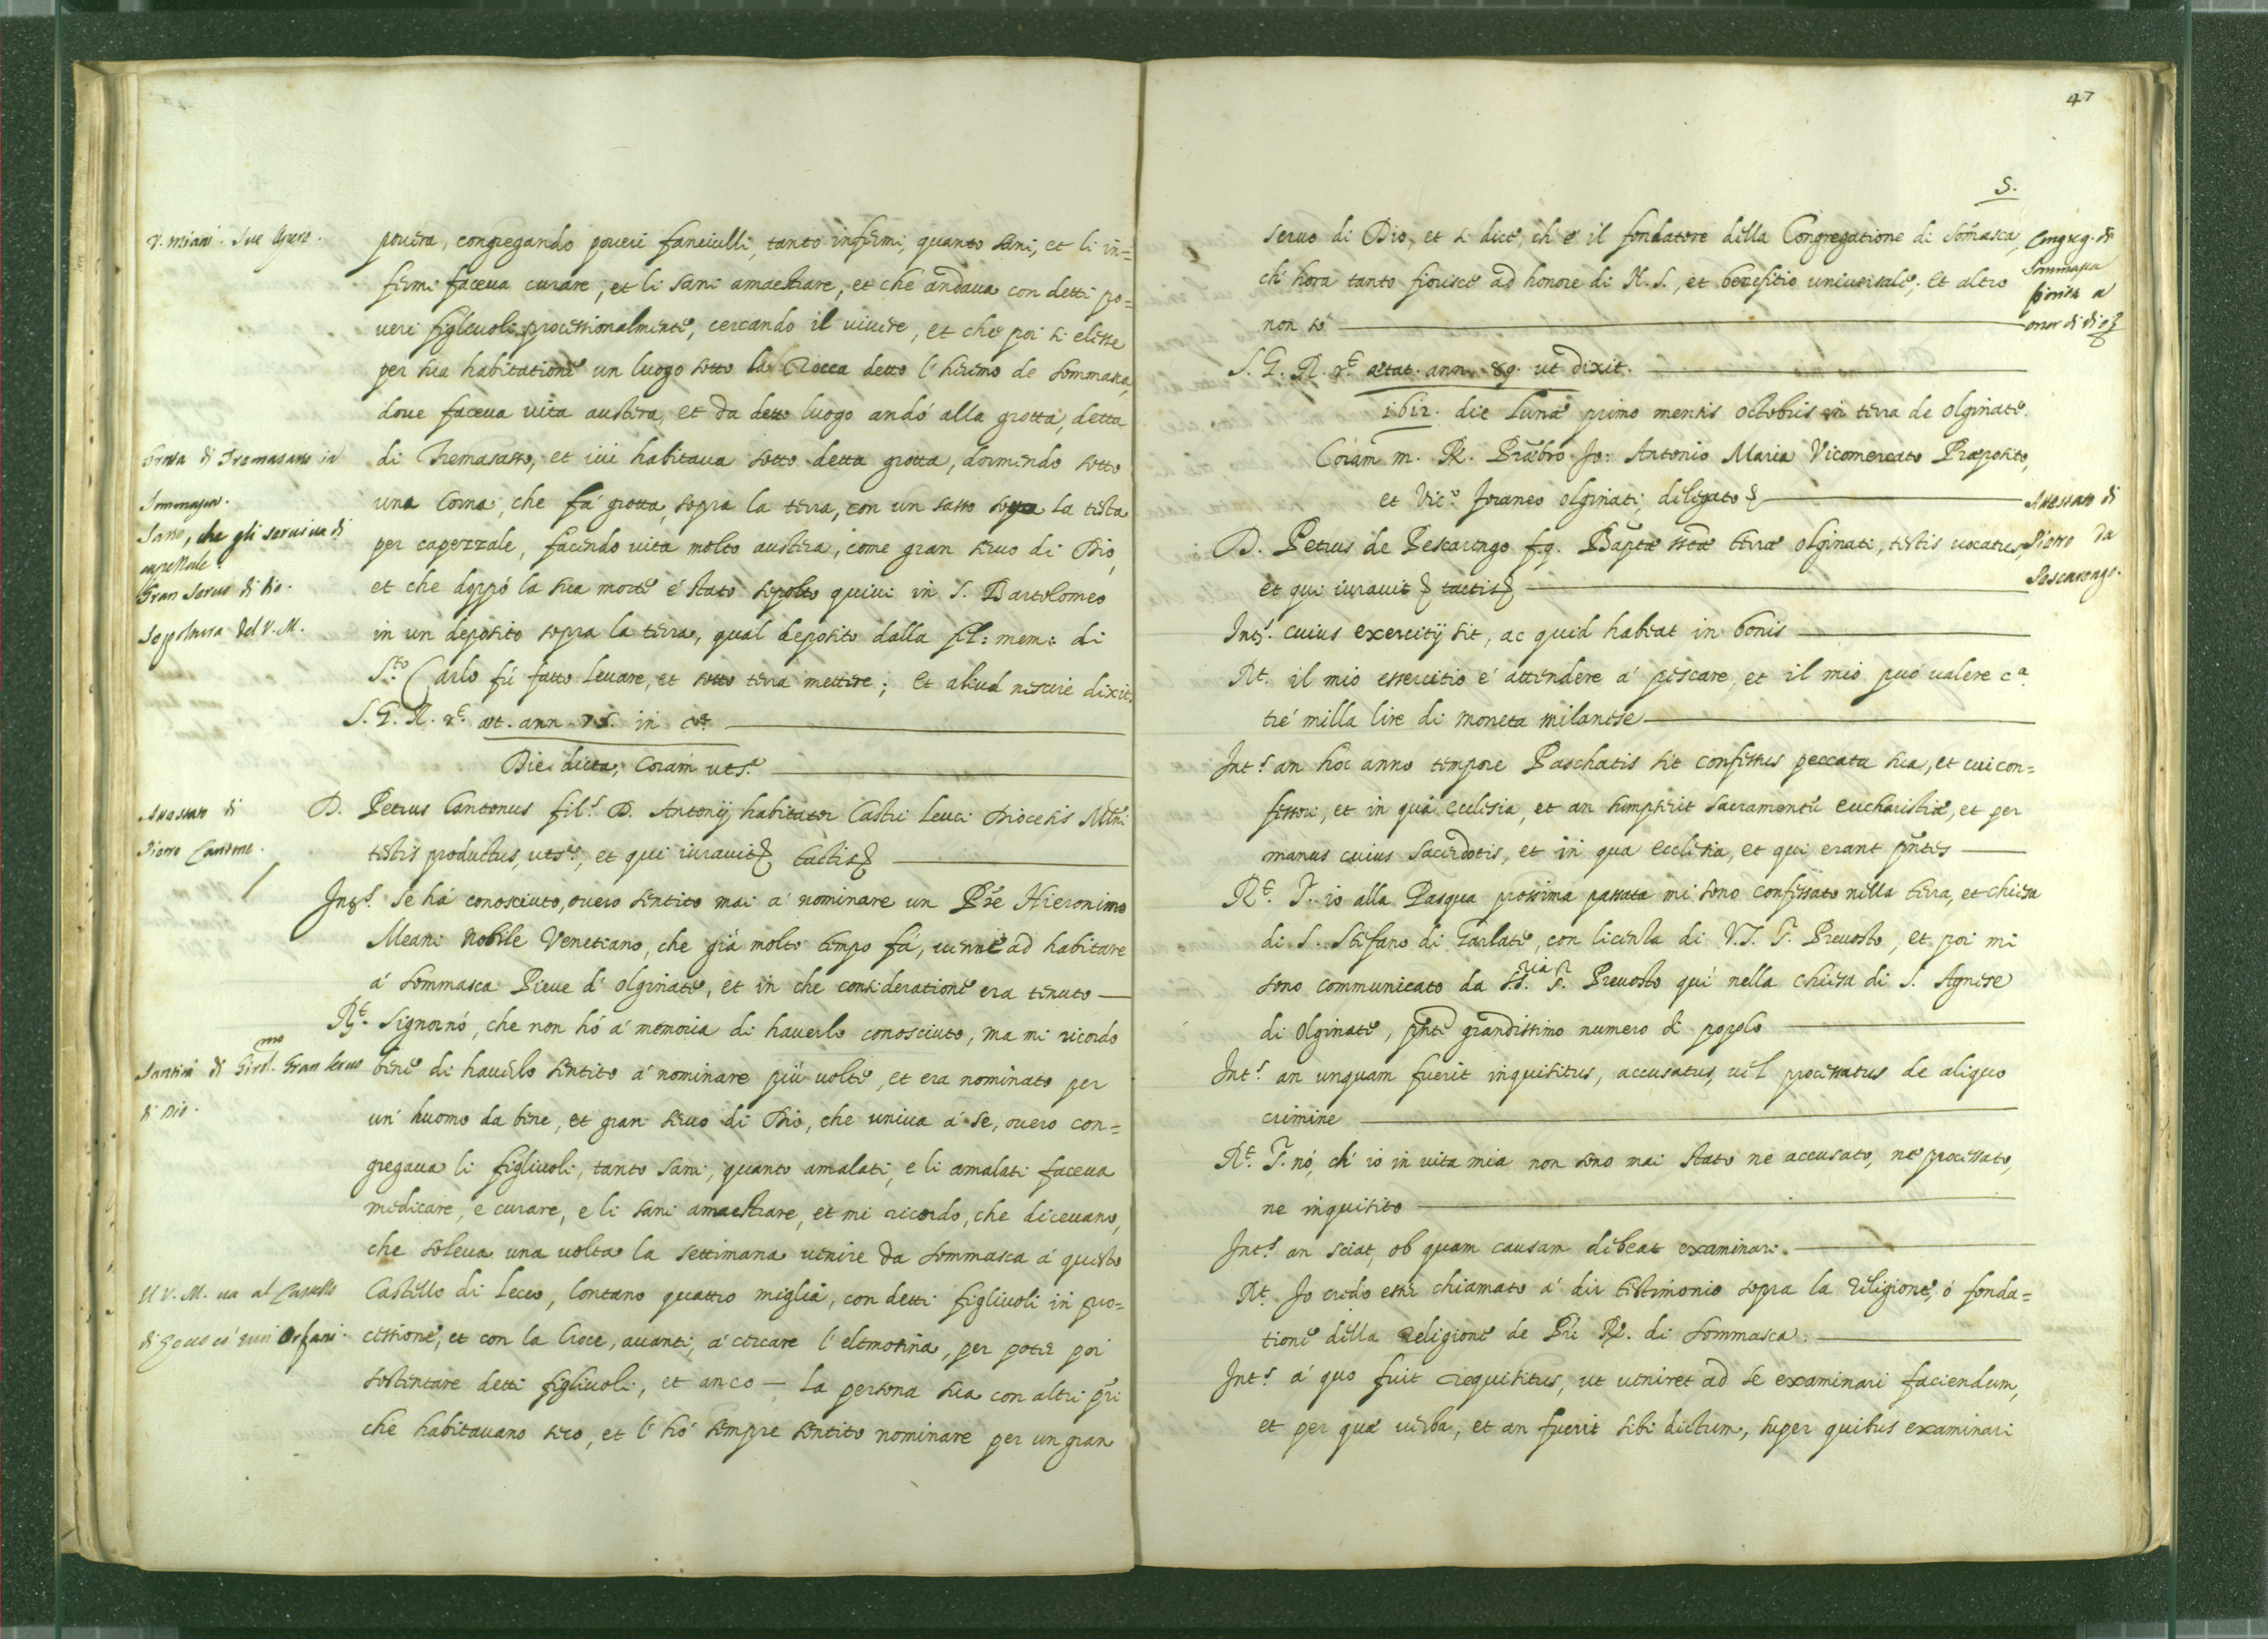 V. Miani. Sue Opere.
povera, congregando poveri fanciulli, tanto infermi, quanto sani, et li in=
fermi faceva curare, et li sani amaestrare, et che andava con detti po=
veri figlivoli processionalmente, cercando il vivere, et che poi si elesse
per sua habitatione un luogo sotto la Rocca detto l'heremo de Sommasca,
dove faceva vita austera, et da detto luogo andò alla grotta, detta
Grotta di Tremasasso in
di Tremasasso, et ivi habitava sotto detta grotta, dormendo sotto
Sommasca.
una Corna, che fà grotta, sopra la terra, con un sasso sopra la testa
Sasso, che gli serviva di
capezzale
per capezzale, facendo vita molto austera, come gran servo di Dio,
Gran Servo di Dio.
et che doppò la sua morte è stato sepolto quivi in S. Bartolomeo
Sepoltura del V. M.
in un deposito sopra la terra, qual deposito dalla fel: mem: di
S.to Carlo fù fatto levare, et sotto terra mettere; Et aliud nescire dixit.
S. G. R. r.e æt. ann. 75. in c.a
Die dicta, Coram uts.a
Attestato di
D. Petrus Cantonus fil.s D. Antonij habitator Castri Leuci Diocesis Mlni
Pietro Cantone.
testis productus, uts.a, et qui iuravit tactis
Int.s se hà conosciuto, overo sentito mai à nominare un Pre Hieronimo
Meani Nobile Venetiano, che già molto tempo fà, venne ad habitare
à Sommasca Pieve d'Olginate, et in che consideratione era tenuto
R.t Signornò, che non hò à memoria di haverlo conosciuto, ma mi ricordo
Santità di Girol.mo Gran servo
bene di haverlo sentito à nominare più volte, et era nominato per
di Dio.
un' huomo da bene, et gran servo di Dio, che univa à se, overo con=
gregava li figlivoli, tanto sani, quanto amalati, e li amalati faceva
medicare, e curare, e li sani amaestrare, et mi ricordo, che dicevano,
che soleva una volta la settimana venire da Sommasca à questo
Il V. M. va al Castello
Castello di Lecco, lontano quattro miglia, con detti figlivoli in pro=
di Lecco co' suoi Orfani.
cessione, et con la Croce, avanti, à cercare l'elemosina, per poter poi
sostentare detti figlivoli, et anco — la persona sua con altri pri
che habitavano seco, et l'hò sempre sentito nominare per un gran
47
5.
servo di Dio, et si dice, ch'è il fondatore della Congregatione di Somasca,
Congreg. di
Sommasca
ch'hora tanto fiorisce ad honore di N. S., et benefitio universale; Et altro
fiorita a
non sò
onor di dio
S. G. R. r.e ætat. ann. 89. ut dixit.
1612. die Lunæ primo mensis Octobris in terra de Olginate.
Coram m. R. Præbro Jo: Antonio Maria Vicomercato Præposito,
et Vic.o foraneo Olginati, delegato
Attestato di
D. Petrus de Pescarengo f.q. Baptæ terræ Olginati, testis vocatus,
Pietro da
et qui iuravit tactis
Pescarengo.
Int.s cuius exercitij sit, ac quid habeat in bonis
R.t il mio essercitio è attendere à pescare, et il mio può valere c.a
trè milla lire di moneta milanese
Int.s an hoc anno tempore Paschatis sit confessus peccata sua, et cui con=
fessori, et in quà ecclesia, et an sumpserit sacramentu eucharistiæ, et per
manus cuius sacerdotis, et in qua ecclesia, et qui erant pntes
R.t S. io alla Pasqua prossima passata mi sono confessato nella terra, et chiesa
di S. Stefano di Garlate, con licenza di V. S. S. Prevosto, et poi mi
sono communicato da S. Prevosto quì nella chiesa di S. Agnese
di Olginate, pnte grandissimo numero di popolo
Int.s an unquam fuerit inquisitus, accusatus, vel processatus de aliquo
crimine
R.t S. nò, ch'io in vita mia non sono mai stato ne accusato, ne processato,
ne inquisito
Int.s an sciat, ob quam causam debeat examinari.
R.t Io credo esser chiamato à dir testimonio sopra la religione, ò fonda=
tione della Religione de Pri R. di Sommasca.
Int.s à quo fuit requisitus, ut veniret ad se examinari faciendum,
et per quæ verba, et an fuerit sibi dictum, super quibus examinari